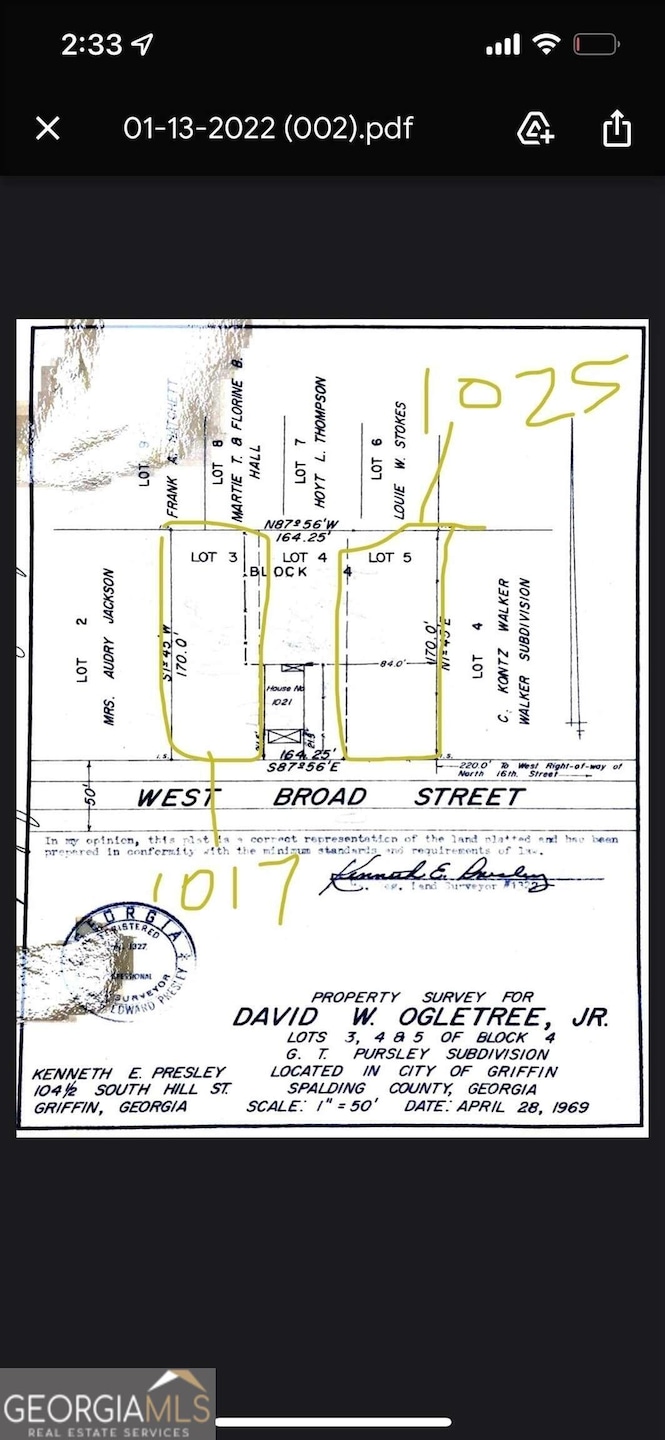 2:33
01-13-2022 (002).pdf
1025
LOT 9
FRANK A.
LOT 8
MARTIE T. & FLORINE B.
HALL
LOT 7
HOYT L. THOMPSON
LOT 6
LOUIE W. STOKES
N87°56'W
164.25'
LOT 3
LOT 4
LOT 5
BLOCK 4
LOT 2
MRS. AUDRY JACKSON
S1°45'W
170.0'
170.0'
N1°45'E
LOT 4
C. KONTZ WALKER
WALKER SUBDIVISION
84.0'
House No
1021
21.5'
I.S.
164.25'
I.S.
S87°56'E
220.0' To West Right-of-way of
North 16th. Street
50'
WEST BROAD STREET
In my opinion, this plat is a correct representation of the land platted and has been
prepared in conformity with the minimum standards and requirements of law.
1017
Kenneth E. Presley
Land Surveyor
GEORGIA
REGISTERED
1327
SURVEYOR
EDWARD PRESLEY
PROPERTY SURVEY FOR
DAVID W. OGLETREE, JR.
LOTS 3, 4 & 5 OF BLOCK 4
G. T. PURSLEY SUBDIVISION
LOCATED IN CITY OF GRIFFIN
SPALDING COUNTY, GEORGIA
SCALE: 1" = 50' DATE: APRIL 28, 1969
KENNETH E. PRESLEY
104½ SOUTH HILL ST.
GRIFFIN, GEORGIA
GEORGIAMLS
REAL ESTATE SERVICES